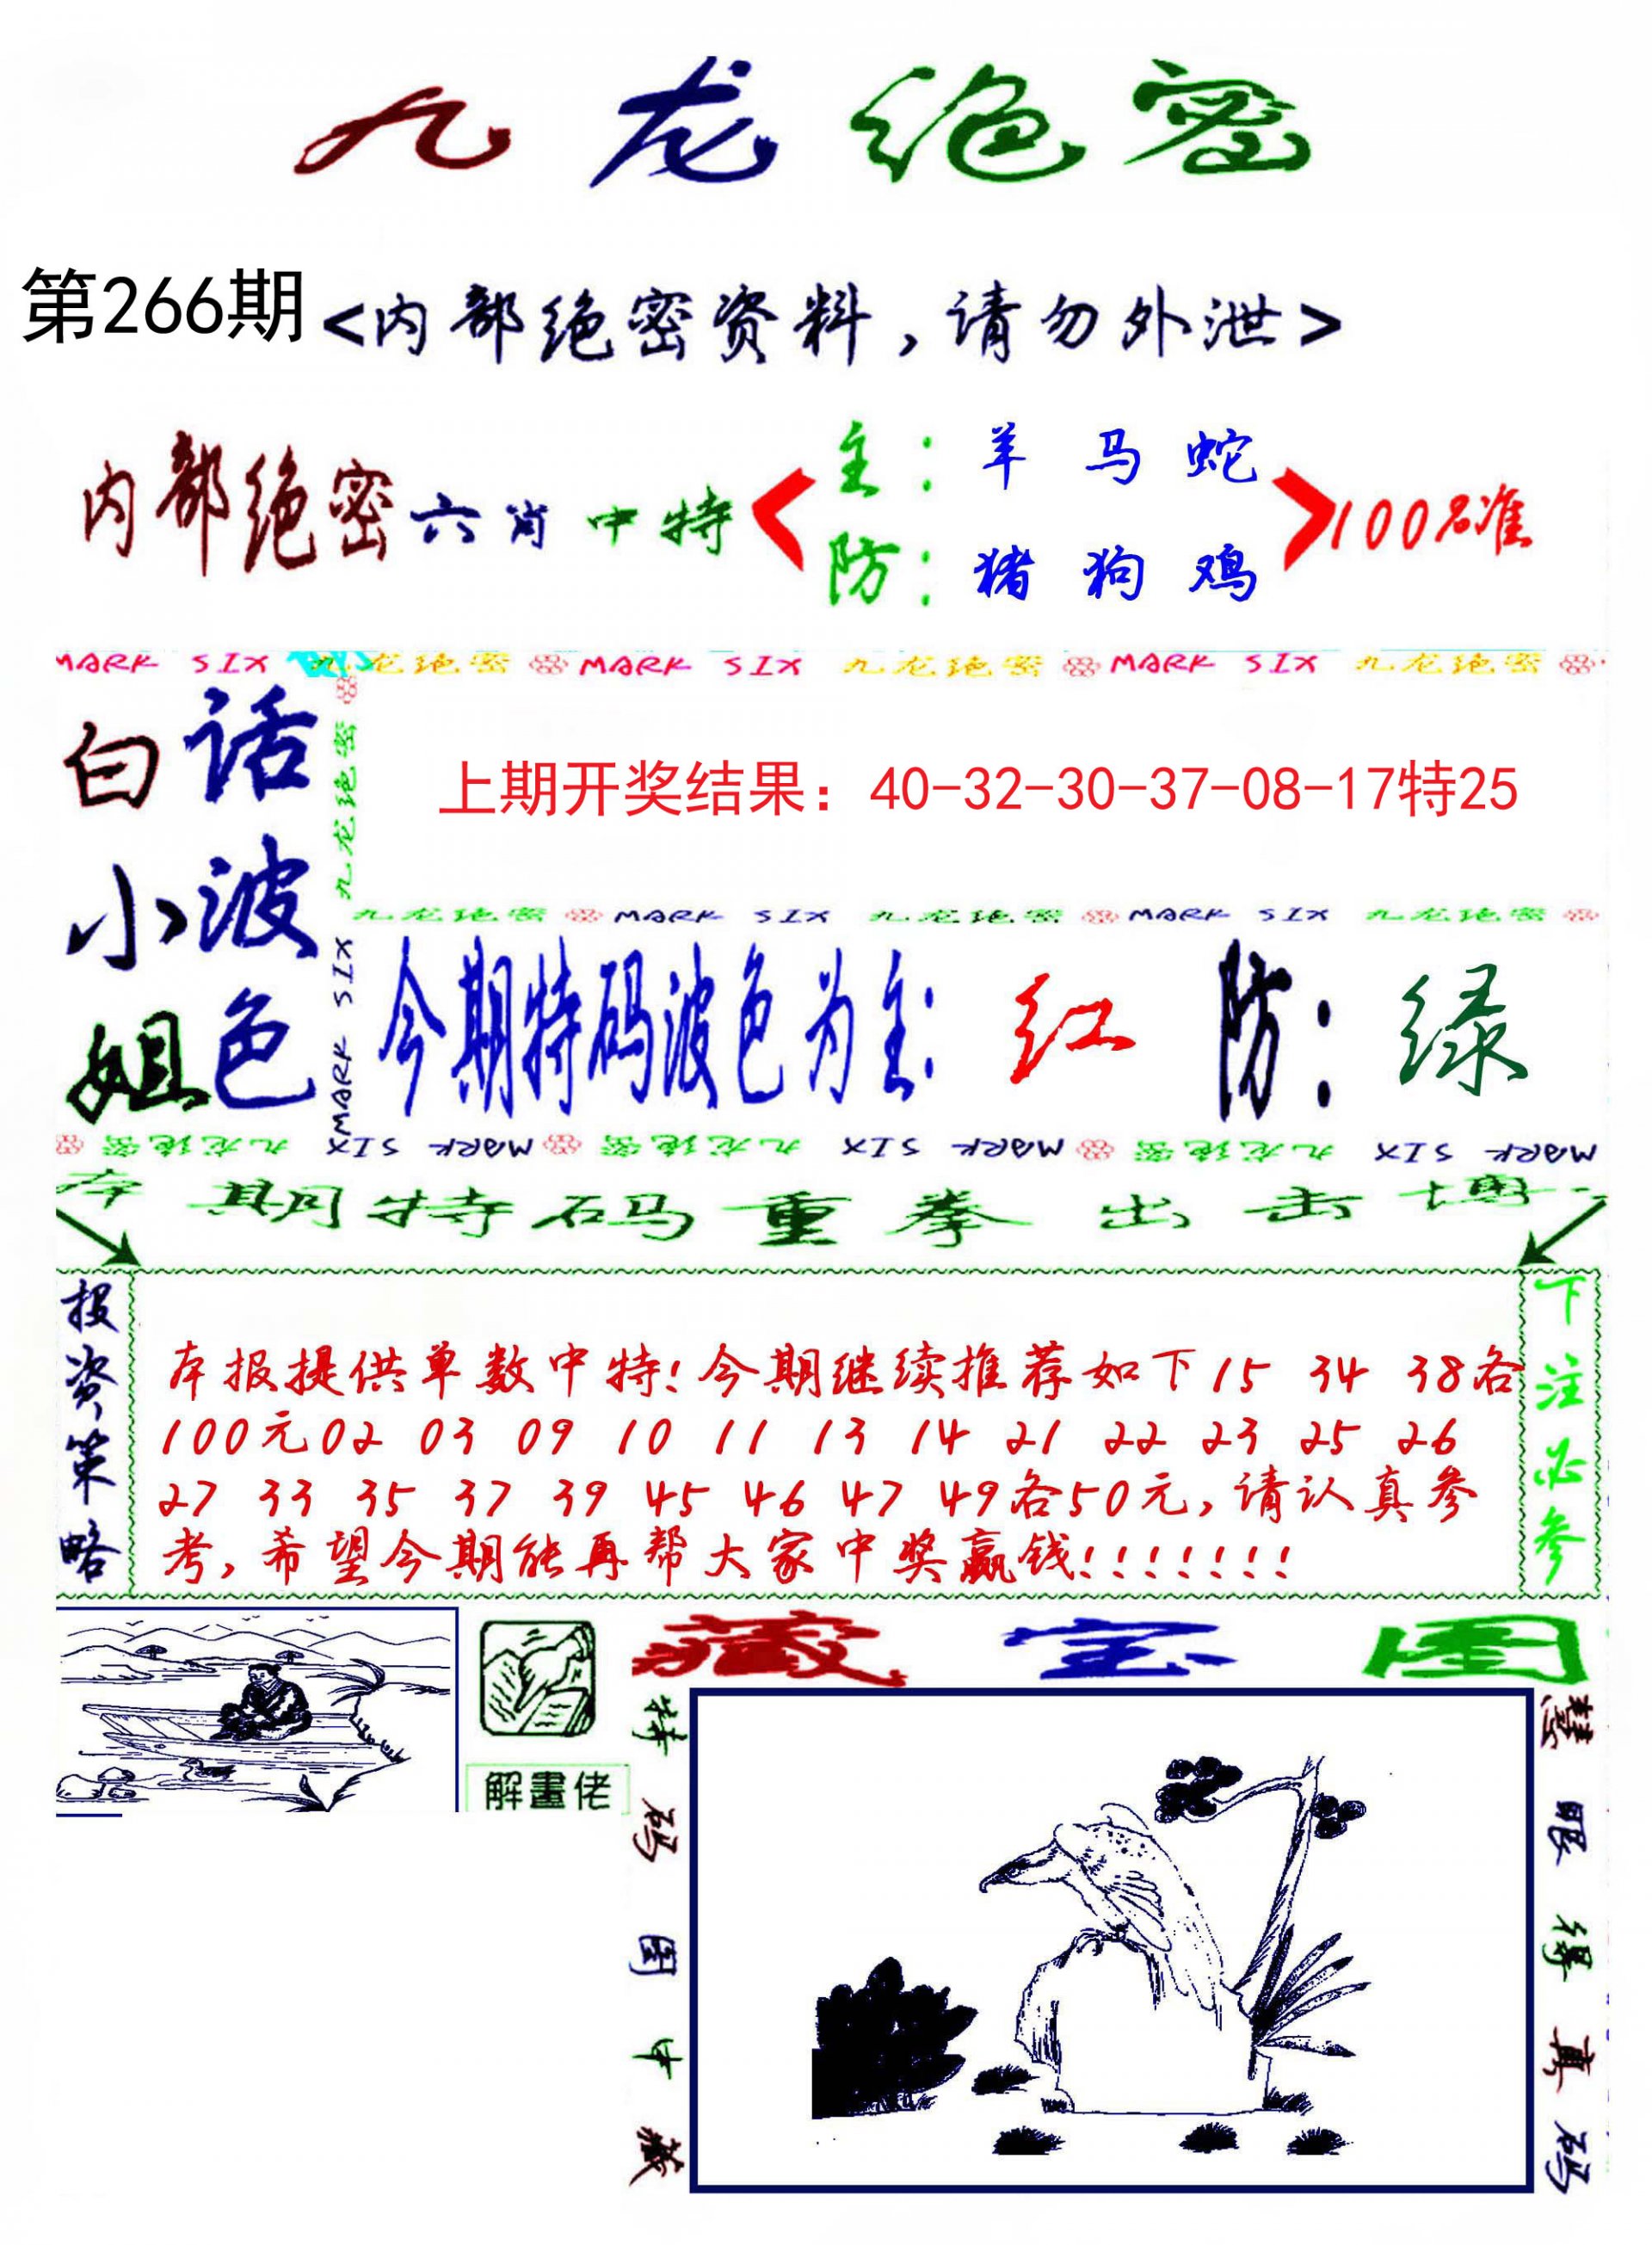 九龙绝密
第266期<内部绝密资料，请勿外泄>
内部绝密六肖中特<主：羊 马 蛇
防：猪 狗 鸡>100%准
MARK SIX 九龙绝密 MARK SIX 九龙绝密 MARK SIX 九龙绝密
白话
小波
姐色
九龙绝密
MARK SIX
上期开奖结果：40-32-30-37-08-17特25
九龙绝密 MARK SIX 九龙绝密 MARK SIX 九龙绝密
今期特码波色为主：红 防：绿
九龙绝密 MARK SIX 九龙绝密 MARK SIX 九龙绝密 MARK SIX
本期特码重拳出击博
投资策略
本报提供单数中特!今期继续推荐如下15 34 38各
100元02 03 09 10 11 13 14 21 22 23 25 26
27 33 35 37 39 45 46 47 49各50元,请认真参
考,希望今期能再帮大家中奖赢钱!!!!!!!
下注必参
解畫佬
藏宝图
特码图中藏
慧眼得真码